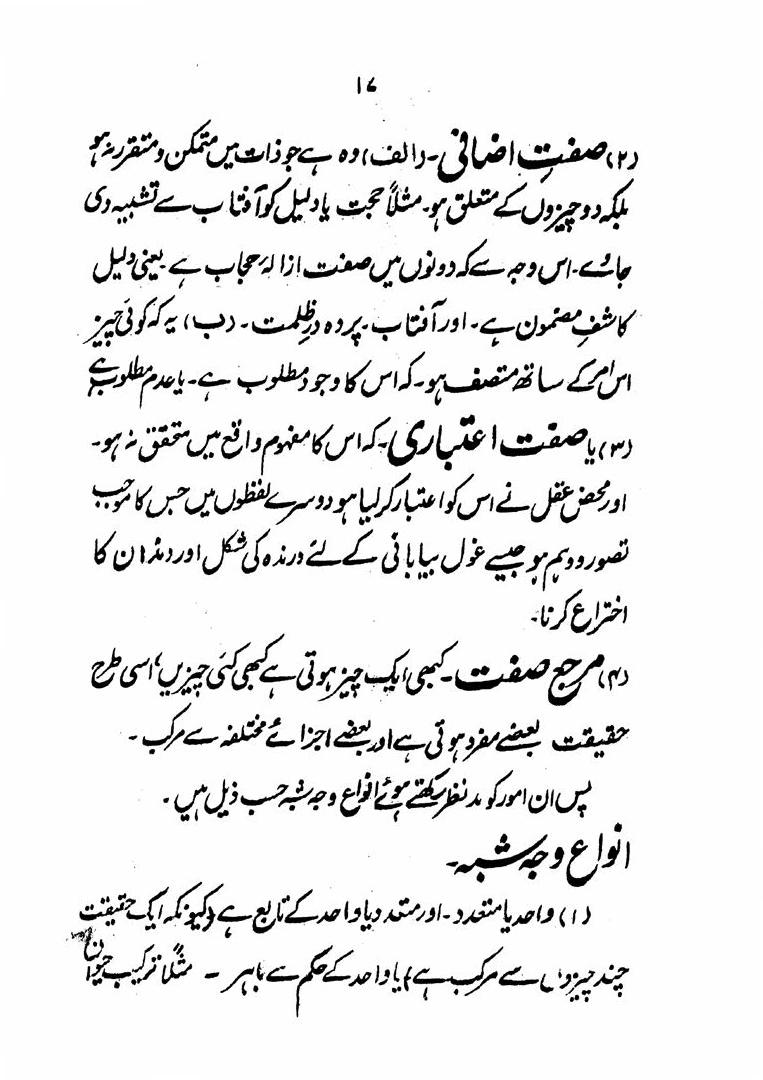 ۱۷
(۲) صفتِ اضافی۔ (الف) وہ ہے جو ذات میں متمکن و متقرر نہ ہو
بلکہ دو چیزوں کے متعلق ہو۔ مثلاً حجت یا دلیل کو آفتاب سے تشبیہ دی
جائے۔ اس وجہ سے کہ دونوں میں صفت ازالۂ حجاب ہے یعنی دلیل
کاشفِ مضمون ہے۔ اور آفتاب۔ پردہ درِ ظلمت۔ (ب) یہ کہ کوئی چیز
اس امر کے ساتھ متصف ہو۔ کہ اس کا وجود مطلوب ہے۔ یا عدم مطلوب ہے
(۳) یا صفت اعتباری۔ کہ اس کا مفہوم واقع میں متحقق نہ ہو۔
اور محض عقل نے اس کو اعتبار کر لیا ہو دوسرے لفظوں میں جس کا موجب
تصور و وہم ہو جیسے غول بیابانی کے لئے درندہ کی شکل اور دندان کا
اختراع کرنا۔
(۴) مرجع صفت۔ کبھی ایک چیز ہوتی ہے کبھی کئی چیزیں، اسی طرح
حقیقت بعضے مفرد ہوتی ہے اور بعضے اجزائے مختلفہ سے مرکب۔
پس ان امور کو مد نظر رکھتے ہوئے انواع وجہ شبہ حسب ذیل ہیں۔
انواع وجہ شبہ۔
(۱) واحد یا متعدد۔ اور متعدد یا واحد کے تابع ہے (کیونکہ ایک حقیقت
چند چیزوں سے مرکب ہے) یا واحد کے حکم سے باہر ۔ مثلاً ترکیب حیوان